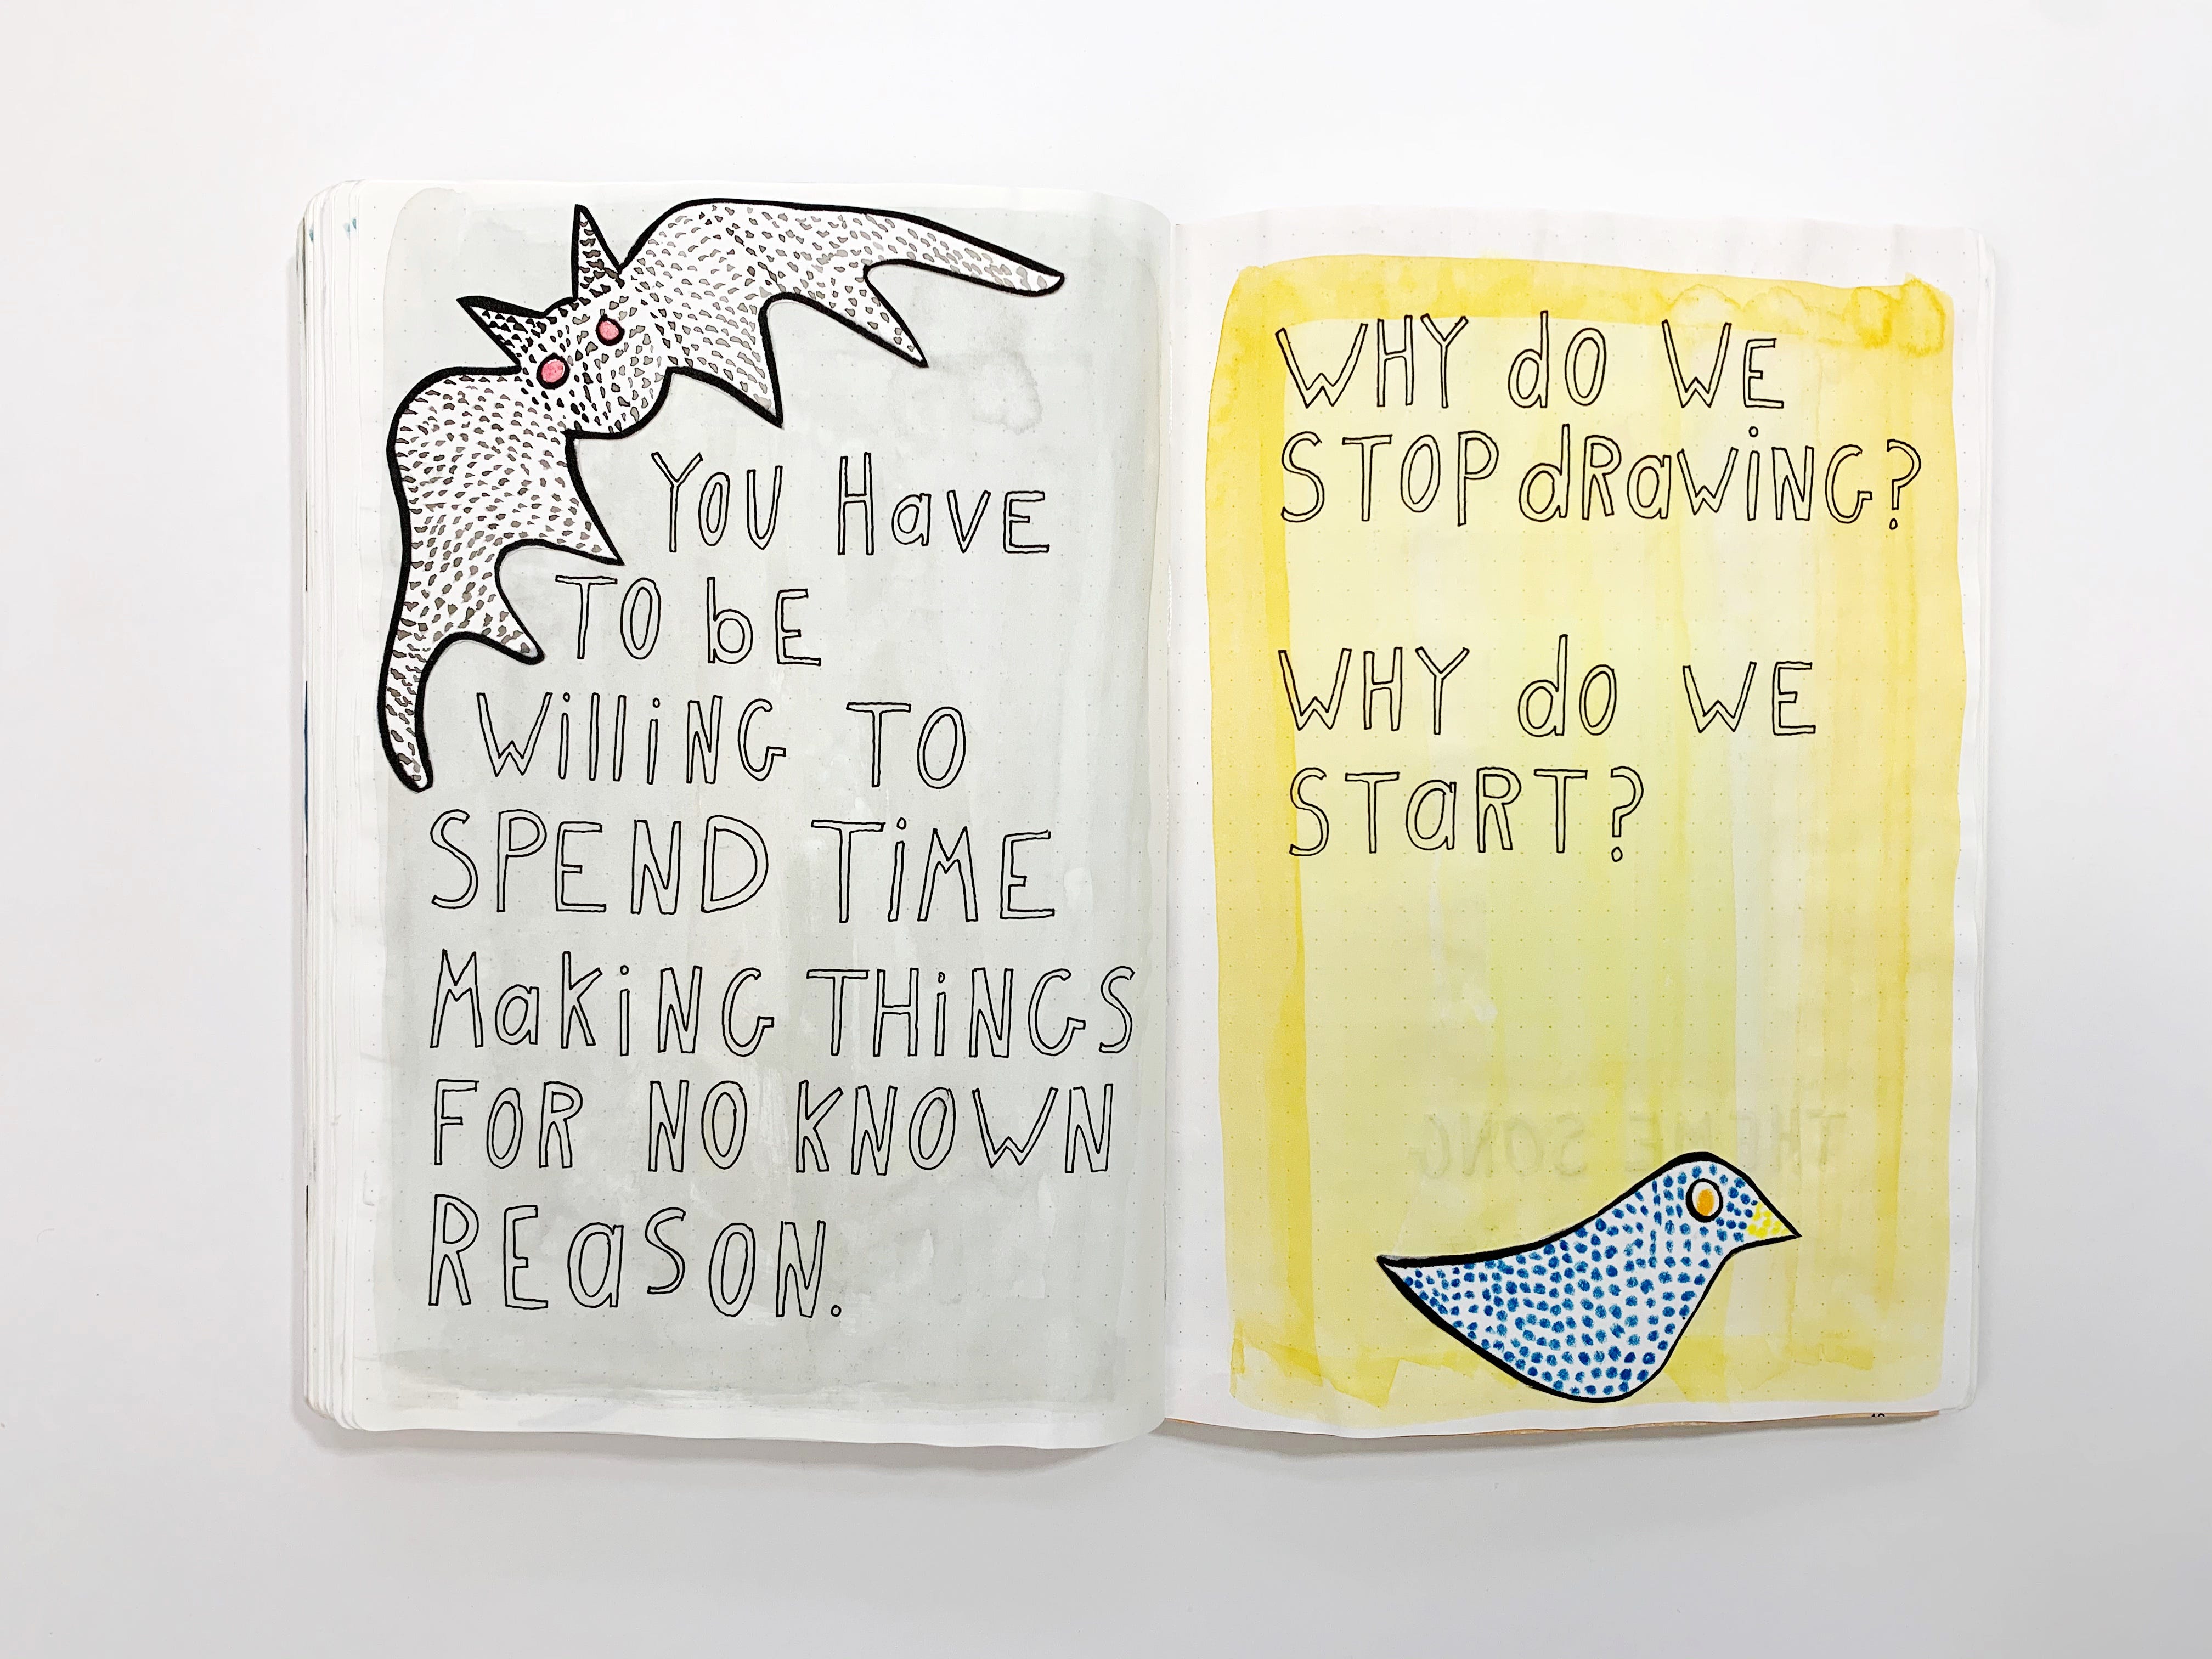 YOU HavE
TO bE
WilliNG TO
SPEND TiME
MakiNG THiNGS
FOR NO KNOWN
REaSON.
WHY do WE
STOP dRawiNG?
WHY do WE
STaRT?
THEME SONG